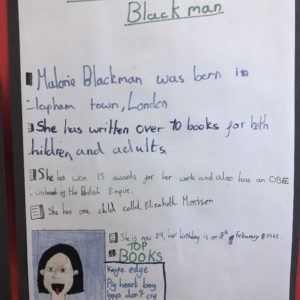 Blackman
Malorie Blackman was born in
Clapham town, London
She has written over 70 books for both
children and adults
She has won 15 awards for her work and also has an OBE
of the British Empire
She has one child called Elizabeth Morrison
She is now 59, her birthday is on 8th of February 1962
TOP
BOOKS
edge
Pig heart boy
boys don't cry